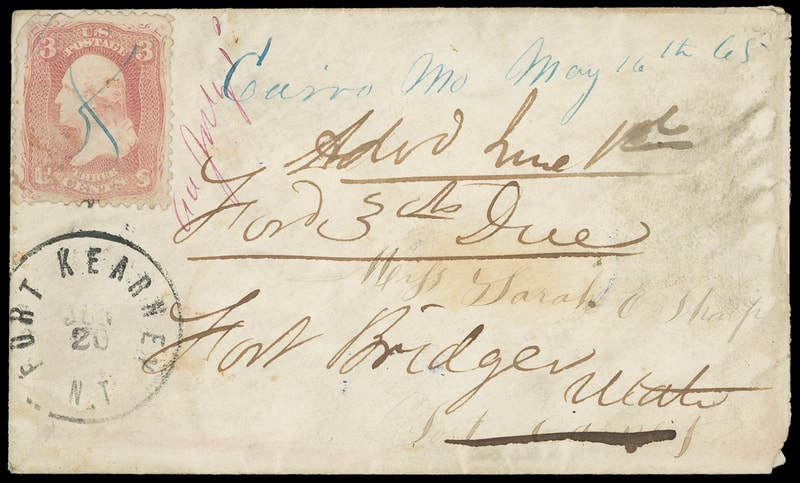 3 U.S. POSTAGE 3
THREE
CENTS
Cairo Mo May 16th 65
Advd June 1st
Ford 3 cts Due
Miss Sarah E Sharp
Fort Bridger
Utah
FORT KEARNEY
JUN
20
N.T